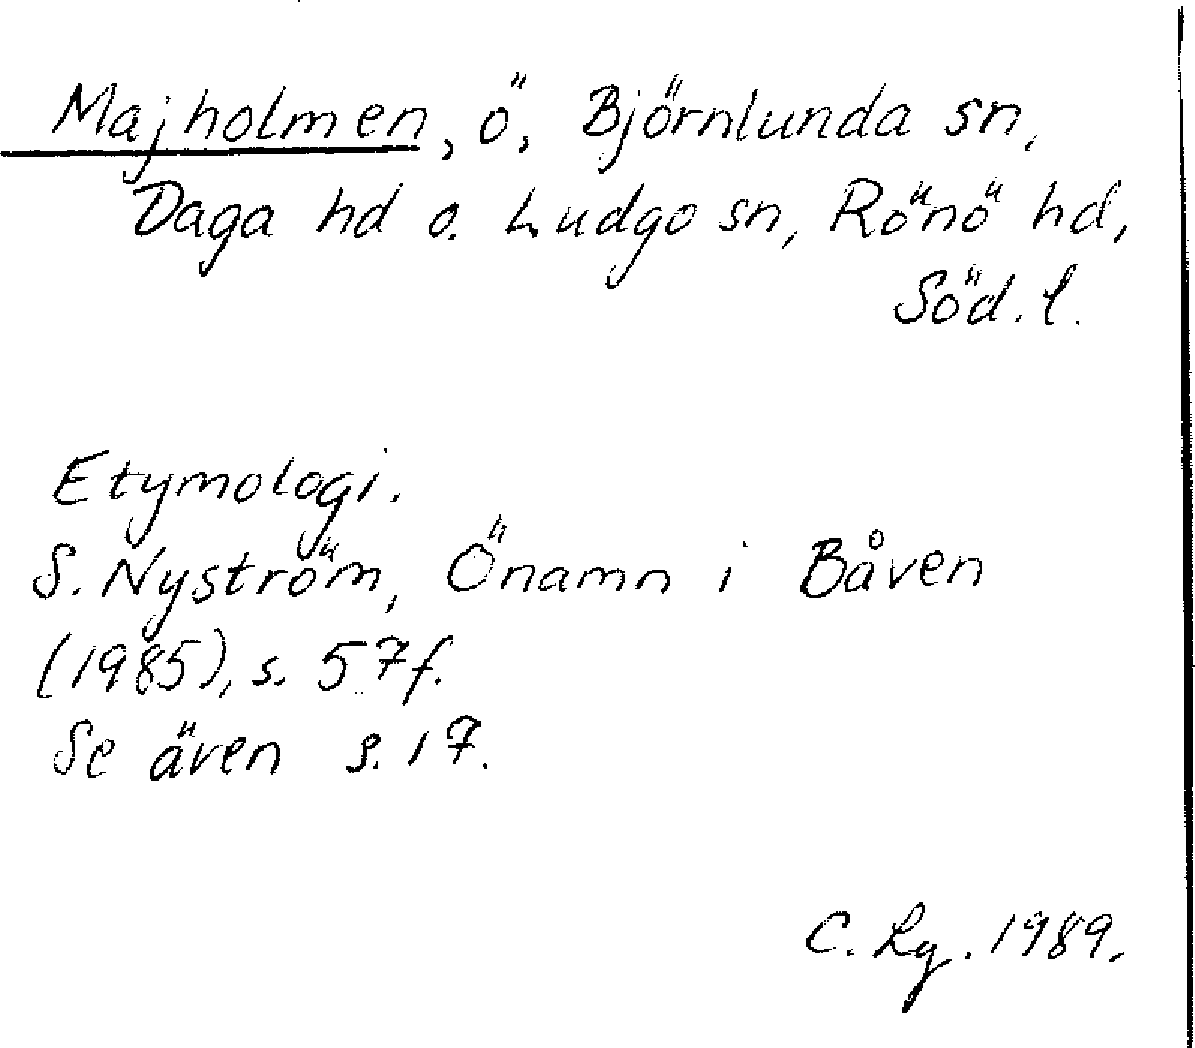 Majholmen, ö, Björnlunda sn,
Daga hd o. Ludgo sn, Rönö hd,
Söd. l.
Etymologi.
S. Nyström, Önamn i Båven
(1985), s. 57f.
Se även s. 17.
C. Lg. 1989.